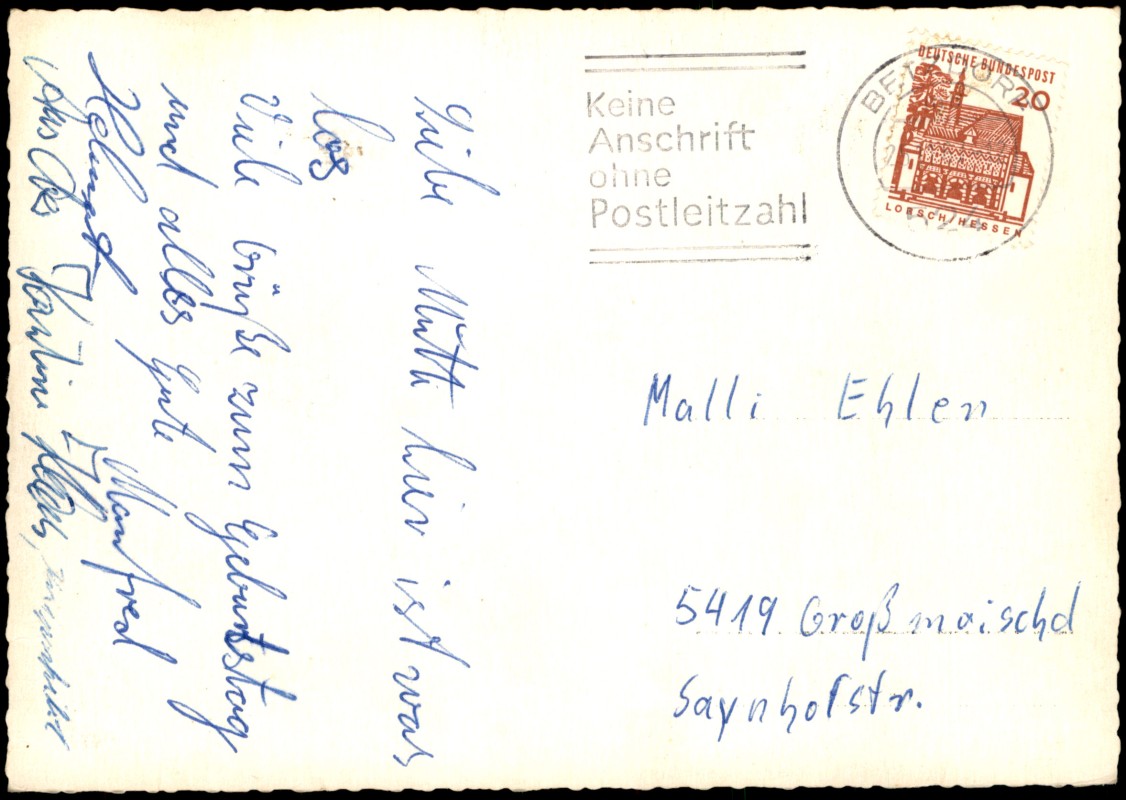 Liebe Mutti hier ist was
los
Viele Grüße zum Geburtstag
und alles Gute
Helmut Manfred
Keine
Anschrift
ohne
Postleitzahl
DEUTSCHE BUNDESPOST
20
LORSCH/HESSEN
Malli Ehlen
5419 Großmaischd
Saynhofstr.